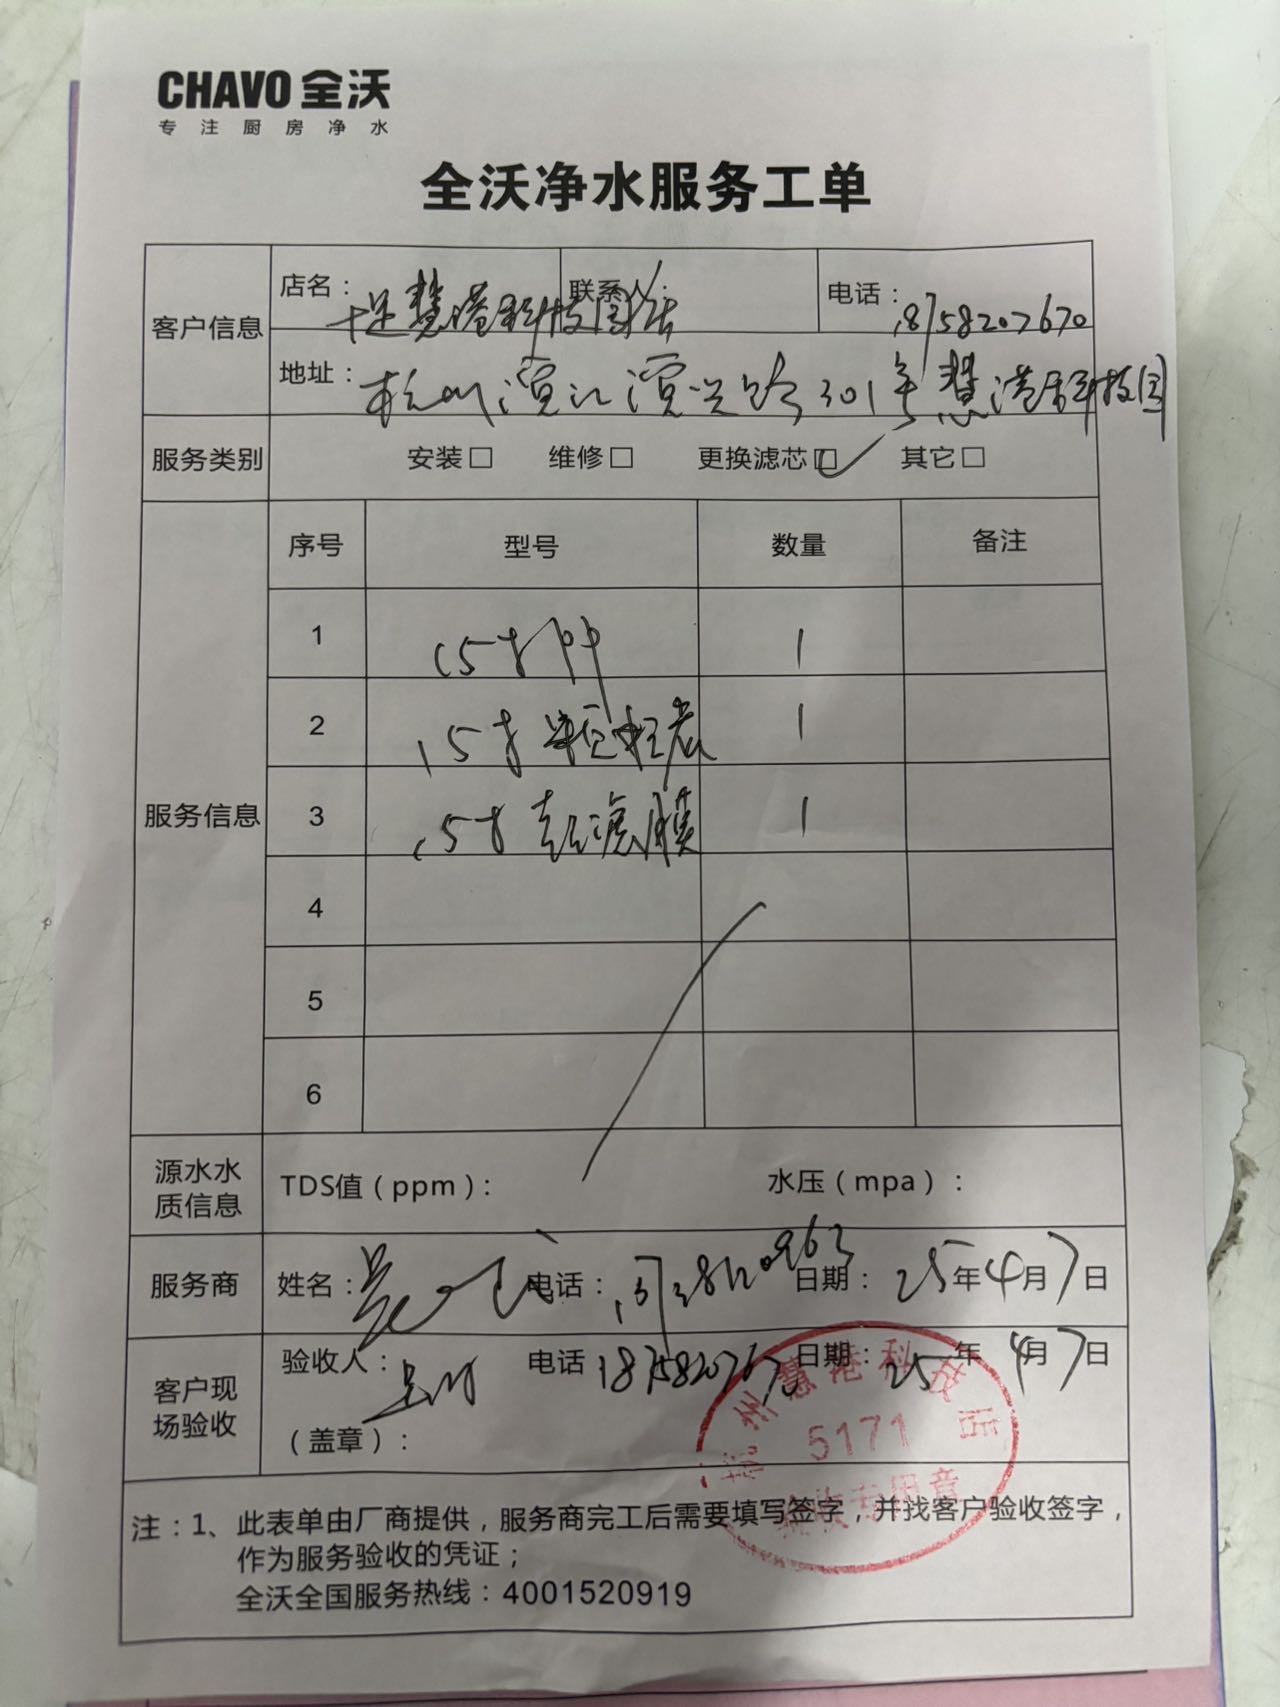 CHAVO 全沃
专注厨房净水
全沃净水服务工单
客户信息
店名：十足慧港科技园店
联系人：
电话：18758207670
地址：杭州滨江滨兴路301号慧港科技园
服务类别
安装□ 维修□ 更换滤芯□✓ 其它□
服务信息
序号 型号 数量 备注
1 15寸PP 1
2 15寸 1
3 15寸超滤膜 1
4
5
6
源水水质信息
TDS值（ppm）：
水压（mpa）：
服务商
姓名：吴
电话：
日期：25年4月7日
客户现场验收
验收人：
电话 18758207670
日期：25年4月7日
（盖章）：
杭州慧港科技店
5171
验收专用章
注：1、此表单由厂商提供，服务商完工后需要填写签字，并找客户验收签字，
作为服务验收的凭证；
全沃全国服务热线：4001520919